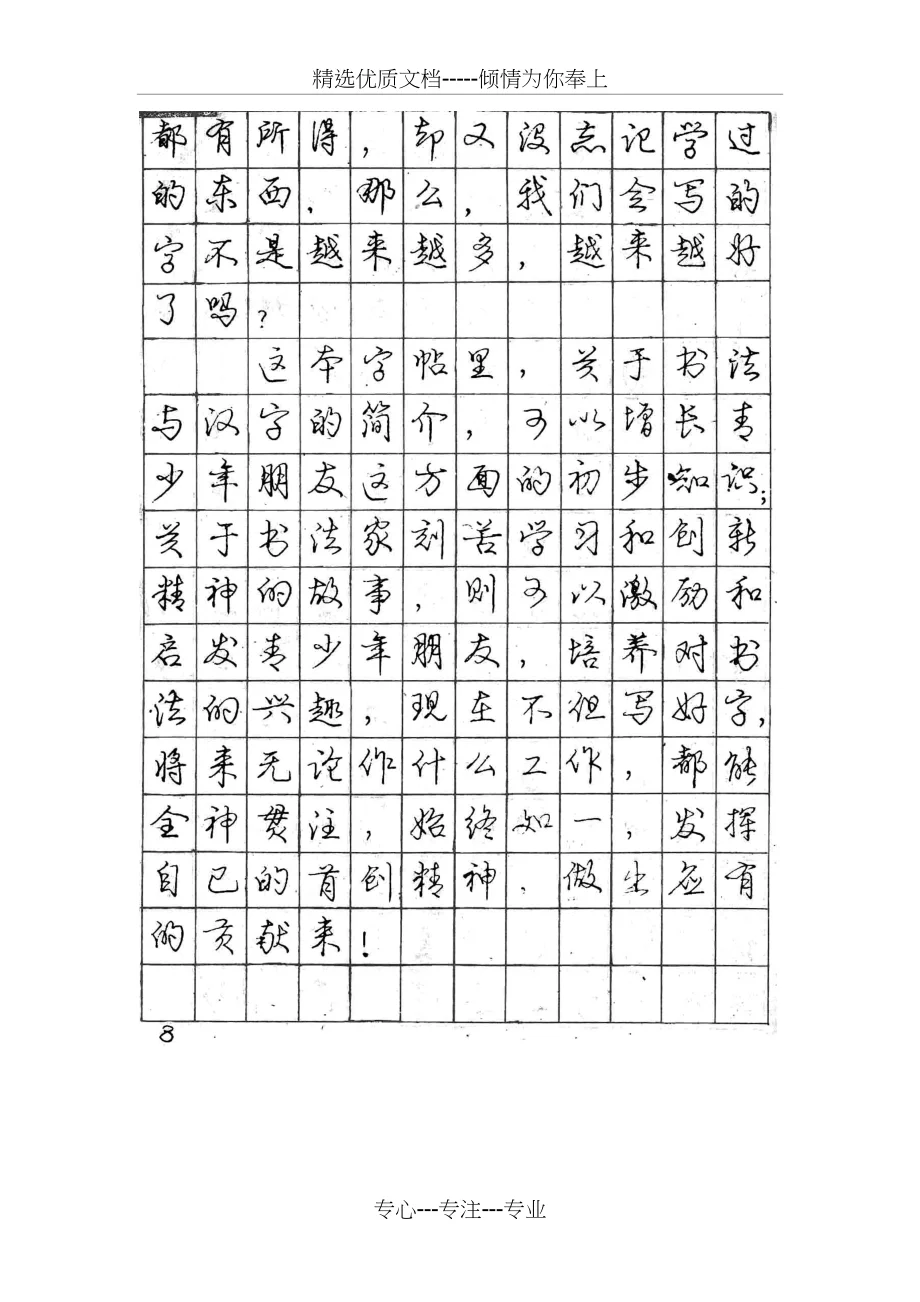 精选优质文档-----倾情为你奉上
都有所得，却又没忘记学过
的东西，那么，我们会写的
字不是越来越多，越来越好
了吗？
这本字帖里，关于书法
与汉字的简介，可以增长青
少年朋友这方面的初步知识；
关于书法家刻苦学习和创新
精神的故事，则可以激励和
启发青少年朋友，培养对书
法的兴趣，现在不但写好字，
将来无论作什么工作，都能
全神贯注，始终如一，发挥
自己的首创精神，做出应有
的贡献来！
8
专心---专注---专业